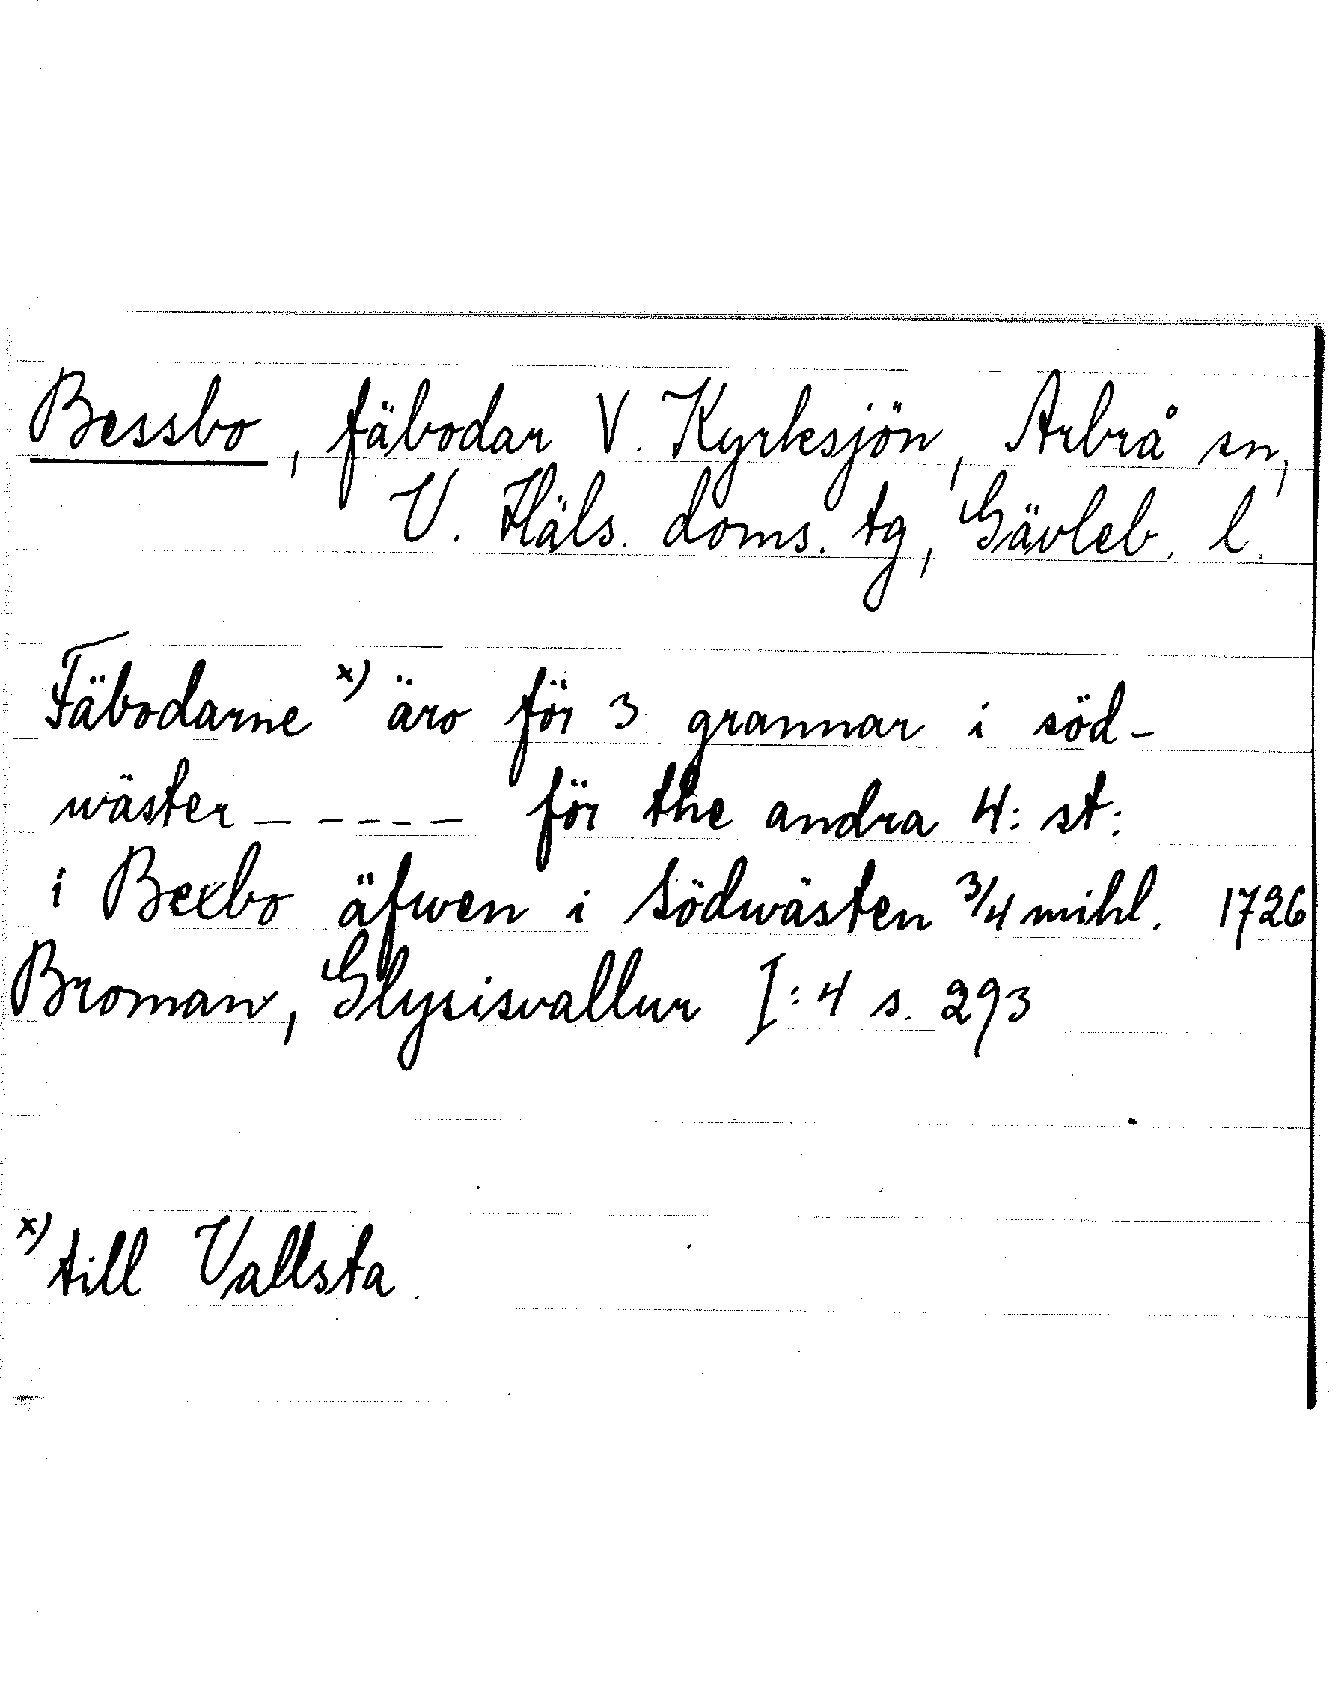 Bessbo, fäbodar V. Kyrksjön, Arbrå sn,
V. Häls. doms. tg, Gävleb. l.
Fäbodarne x) äro för 3 grannar i söd-
wäster – – – – – för the andra 4: st:
i Bexbo äfwen i Södwästen 3/4 mihl. 1726
Broman, Glysisvallur I:4 s. 293
x) till Vallsta.